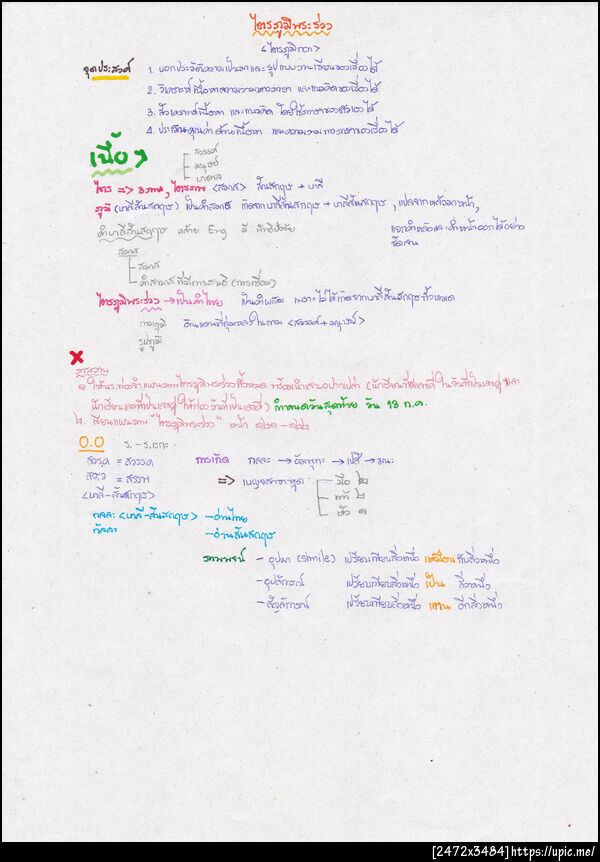 ไตรภูมิพระร่วง
<ไตรภูมิกถา>
จุดประสงค์ 1. บอกประวัติความเป็นมาและรูปแบบงานเขียนของเรื่องได้
2. วิเคราะห์เนื้อหาความงามทางภาษา และแนวคิดของเรื่องได้
3. สังเคราะห์เนื้อหา และแนวคิด โดยใช้ภาษาของตัวเองได้
4. ประเมินคุณค่าด้านเนื้อหา และความงามทางภาษาของเรื่องได้
เนื้อ
สวรรค์
มนุษย์
บาดาล
ไตร => 3ภพ, ไตรภพ <สมาส> สันสกฤษ + บาลี
ภูมิ (บาลีสันสกฤษ) เป็นคำสมาส เกิดจากบาลีสันสกฤษ + บาลีสันสกฤษ, แปลจากหลังมาหน้า,
คำบาลีสันสกฤษ คล้าย Eng มี
แยกคำหลังและคำหน้าออกได้อย่าง
ชัดเจน
สมาส
สมาส
คำสมาสที่มีการสนธิ (การเชื่อม)
ไตรภูมิพระร่วง → เป็นคำไทย เป็นคำผสม เพราะไม่ได้เกิดจากบาลีสันสกฤษทั้งหมด
กามภูมิ ดินแดนที่ลุ่มหลงในกาม <สวรรค์ + มนุษย์>
รูปภูมิ
X
ภาระงาน
๑. ให้นร.ท่องจำแผนภาพไตรภูมิพระร่วงทั้งหมด พร้อมนำเสนอปากเปล่า (นักเรียนที่เลขคี่ ในวันที่เป็นเลขคู่ และ
นักเรียนเลขที่เป็นเลขคู่ ให้ท่อง วันที่เป็นเลขคี่) กำหนดวันสุดท้าย วัน 13 ก.ค.
๒. เขียนแผนภาพ "ไตรภูมิพระร่วง" หน้า ๑๒๑ - ๑๒๒
0.0
สวรฺค = สวรรค์ การเกิด กลละ → อัมพุทะ → เปสิ → ฆนะ
สรฺว = สรรพ => เบญจสาขาหูด
มือ ๒
เท้า ๒
หัว ๑
<บาลี-สันสกฤษ>
กลละ <บาลี-สันสกฤษ> - อ่านไทย
กัลละ - อ่านสันสกฤษ
ภาพพจน์ - อุปมา (simile) เปรียบเทียบสิ่งหนึ่ง เหมือน กับสิ่งหนึ่ง
- อุปลักษณ์ เปรียบเทียบสิ่งหนึ่ง เป็น สิ่งหนึ่ง
- สัญลักษณ์ เปรียบเทียบสิ่งหนึ่ง แทน อีกสิ่งหนึ่ง
[2472x3484] https://upic.me/